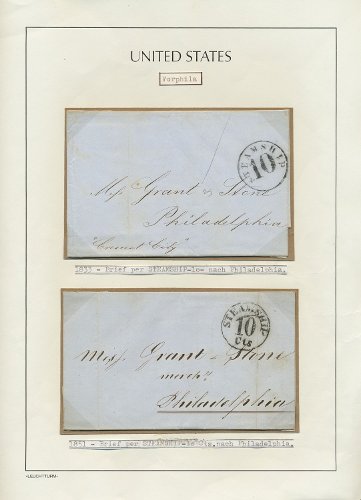 UNITED STATES
Vorphila
STEAMSHIP
10
Grant & Stone
Philadelphia
"Crescent City"
- Brief per STEAMSHIP-10- nach Philadelphia.
STEAMSHIP
10
Cts
Grant & Stone
merch^ts
Philadelphia
1851 - Brief per STEAMSHIP-10 Cts. nach Philadelphia.
-LEUCHTTURM-